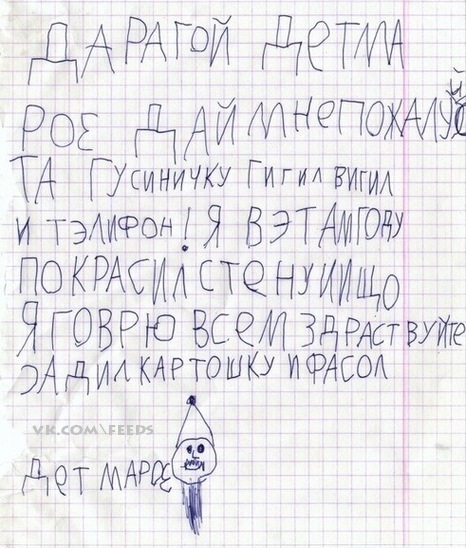 ДАРАГОЙ ДЕТМА
РОЕ ДАЙ МНЕ ПОЖАЛУЙ
ТА ГУСИНИЧКУ ГИГИЛ ВИГИЛ
И ТЭЛИФОН! Я В ЭТАМ ГОДУ
ПОКРАСИЛ СТЕНУ И ИЩО
Я ГОВРЮ ВСЕМ ЗДРАСТВУЙТЕ
ЭАДИЛ КАРТОШКУ И ФАСОЛ
VK.COM\FEEDS
ДЕТ МАРОЕ